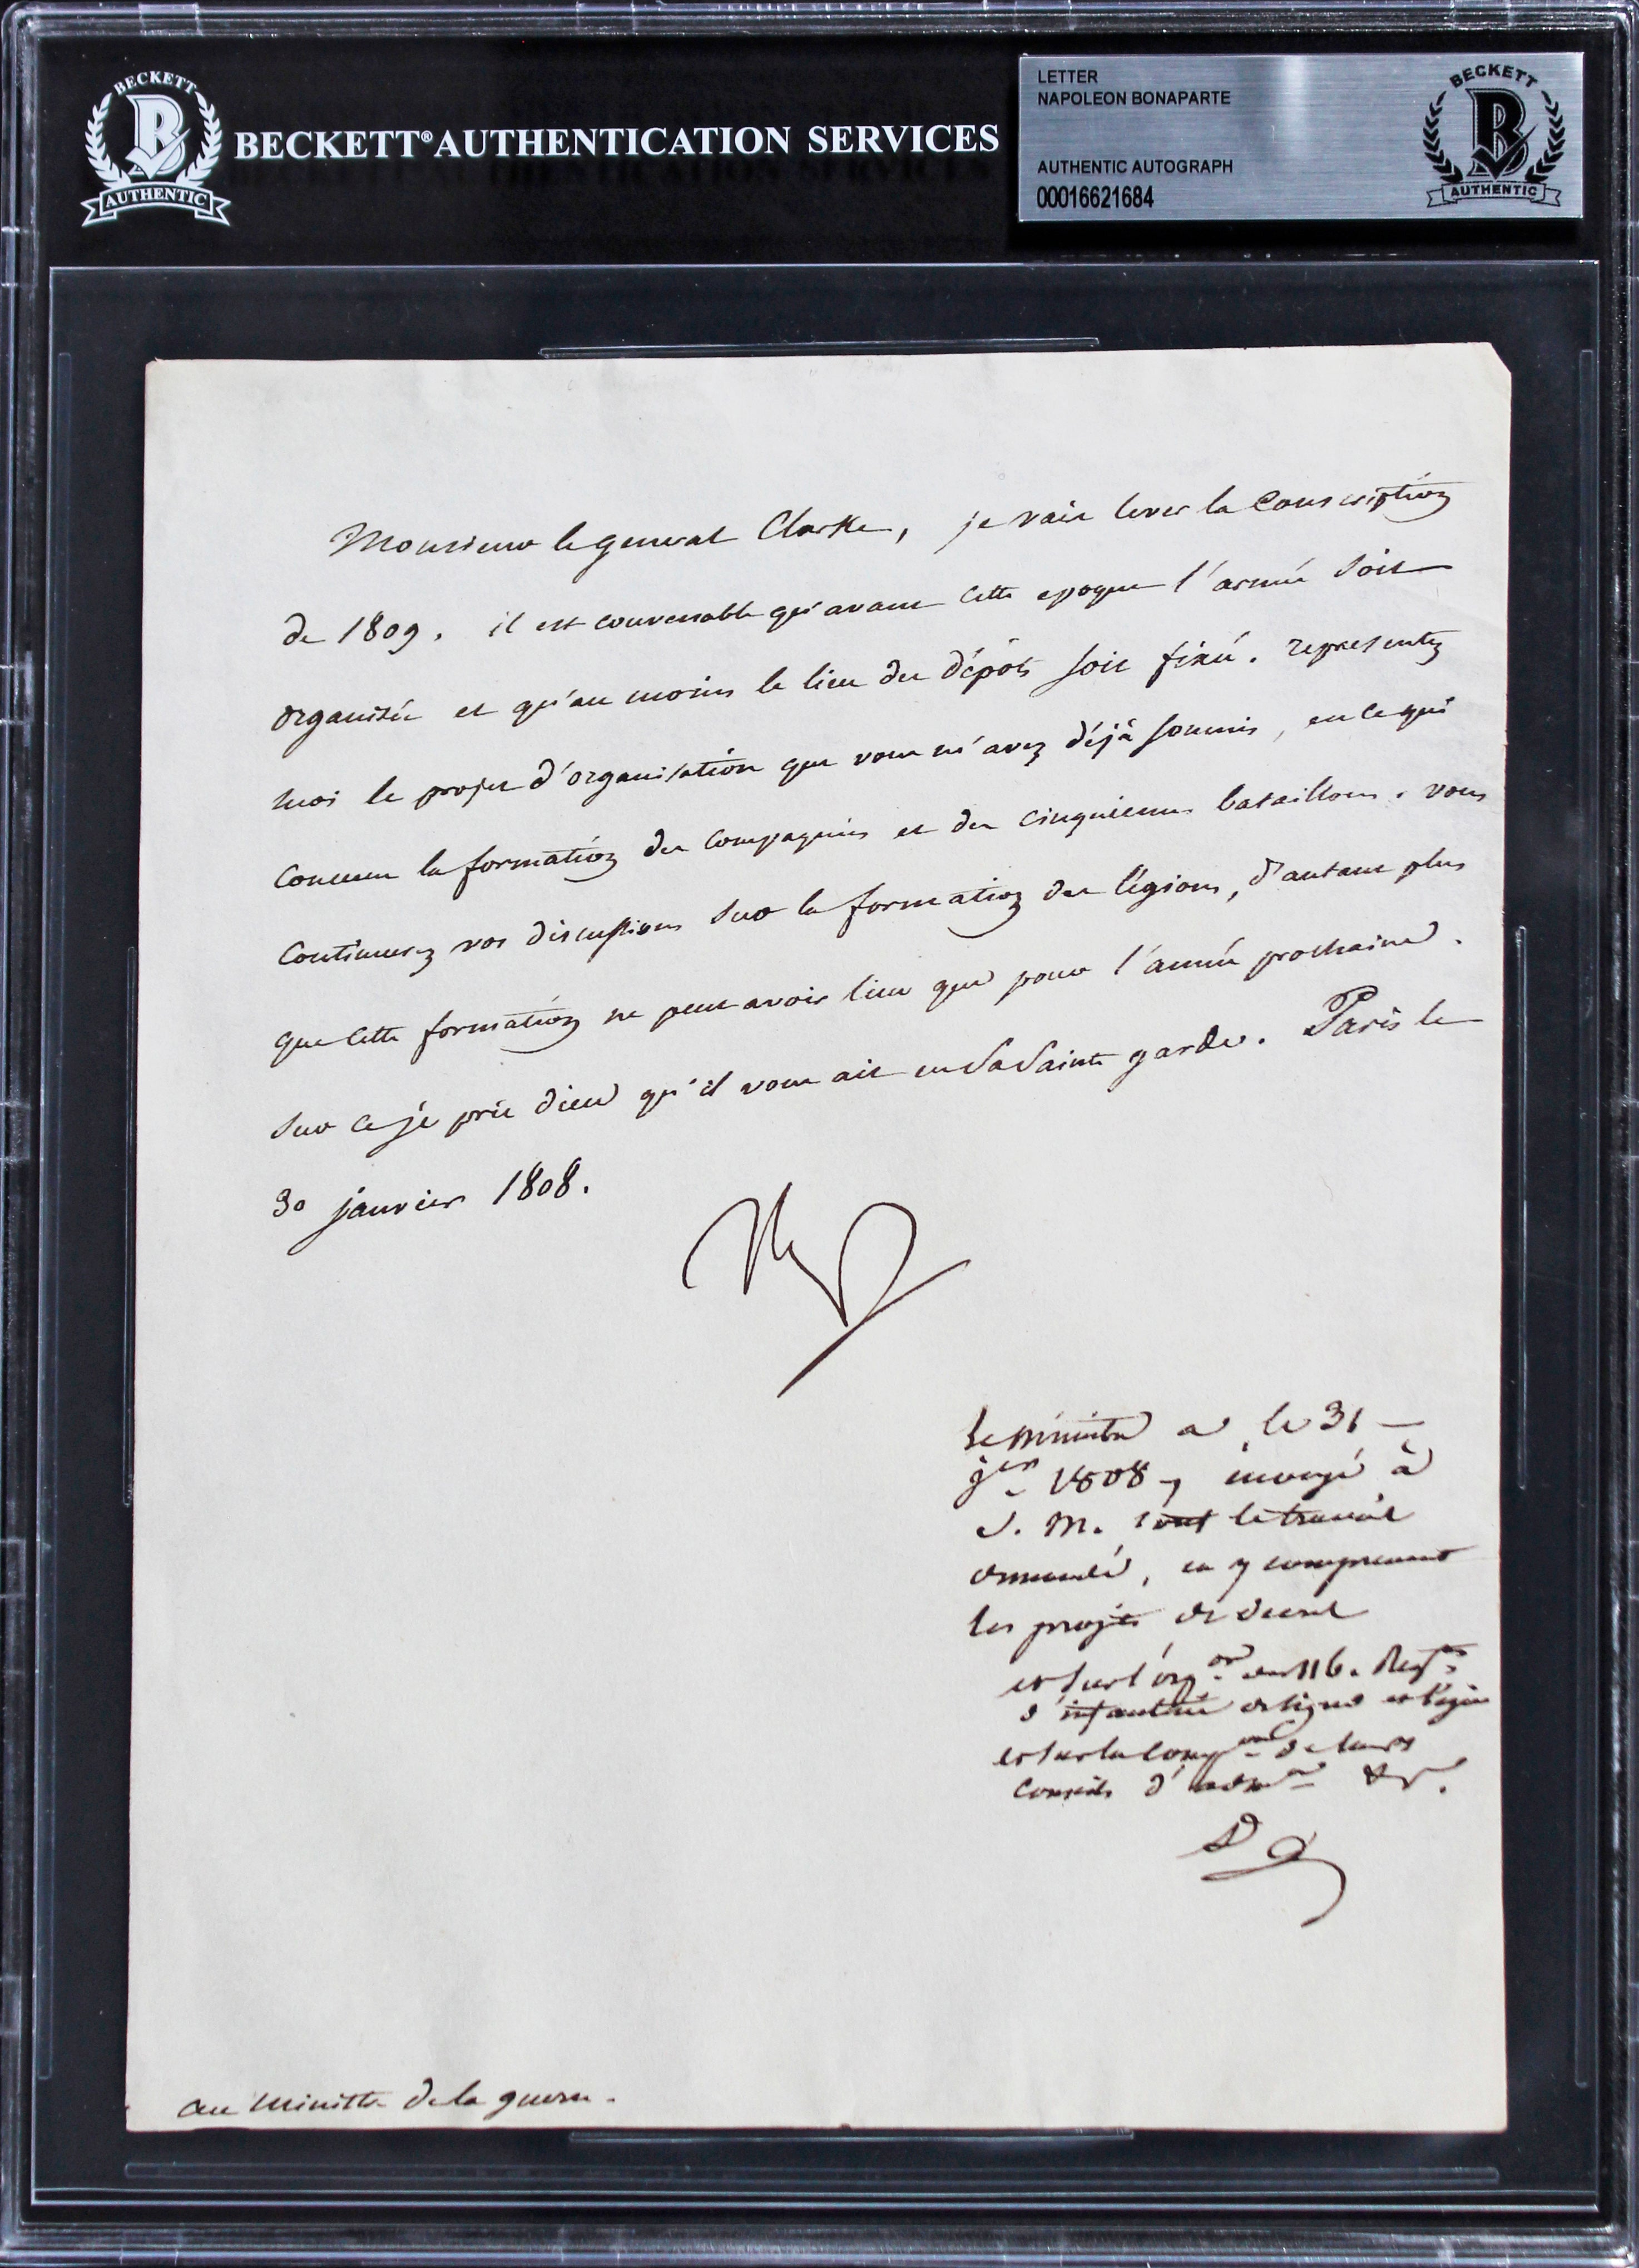 BECKETT
B
AUTHENTIC
BECKETT® AUTHENTICATION SERVICES
LETTER
NAPOLEON BONAPARTE
AUTHENTIC AUTOGRAPH
00016621684
BECKETT
B
AUTHENTIC
Monsieur le general Clarke, je vais lever la Conscription
de 1809. il est convenable qu'avant cette epoque l'armée soit
organisée et qu'au moins le lieu des dépôts soit fixé. representez
moi le projet d'organisation que vous m'avez déjà soumis, en ce qui
concerne la formation des compagnies et des cinquiemes bataillons. vous
continuerez vos discussions sur la formation des légions, d'autant plus
que cette formation ne peut avoir lieu que pour l'année prochaine.
sur ce je prie dieu qu'il vous ait en sa sainte garde. Paris le
30 janvier 1808.
Nap
Le ministre a le 31
jer 1808, envoyé à
S. M. tout le travail
demandé, en y comprenant
les projets de decret
et sur l'orgon des 116. Regts
d'infanterie de ligne et légère
et sur la compon de leurs
Conseils d'admon &c.
au Ministre de la guerre.